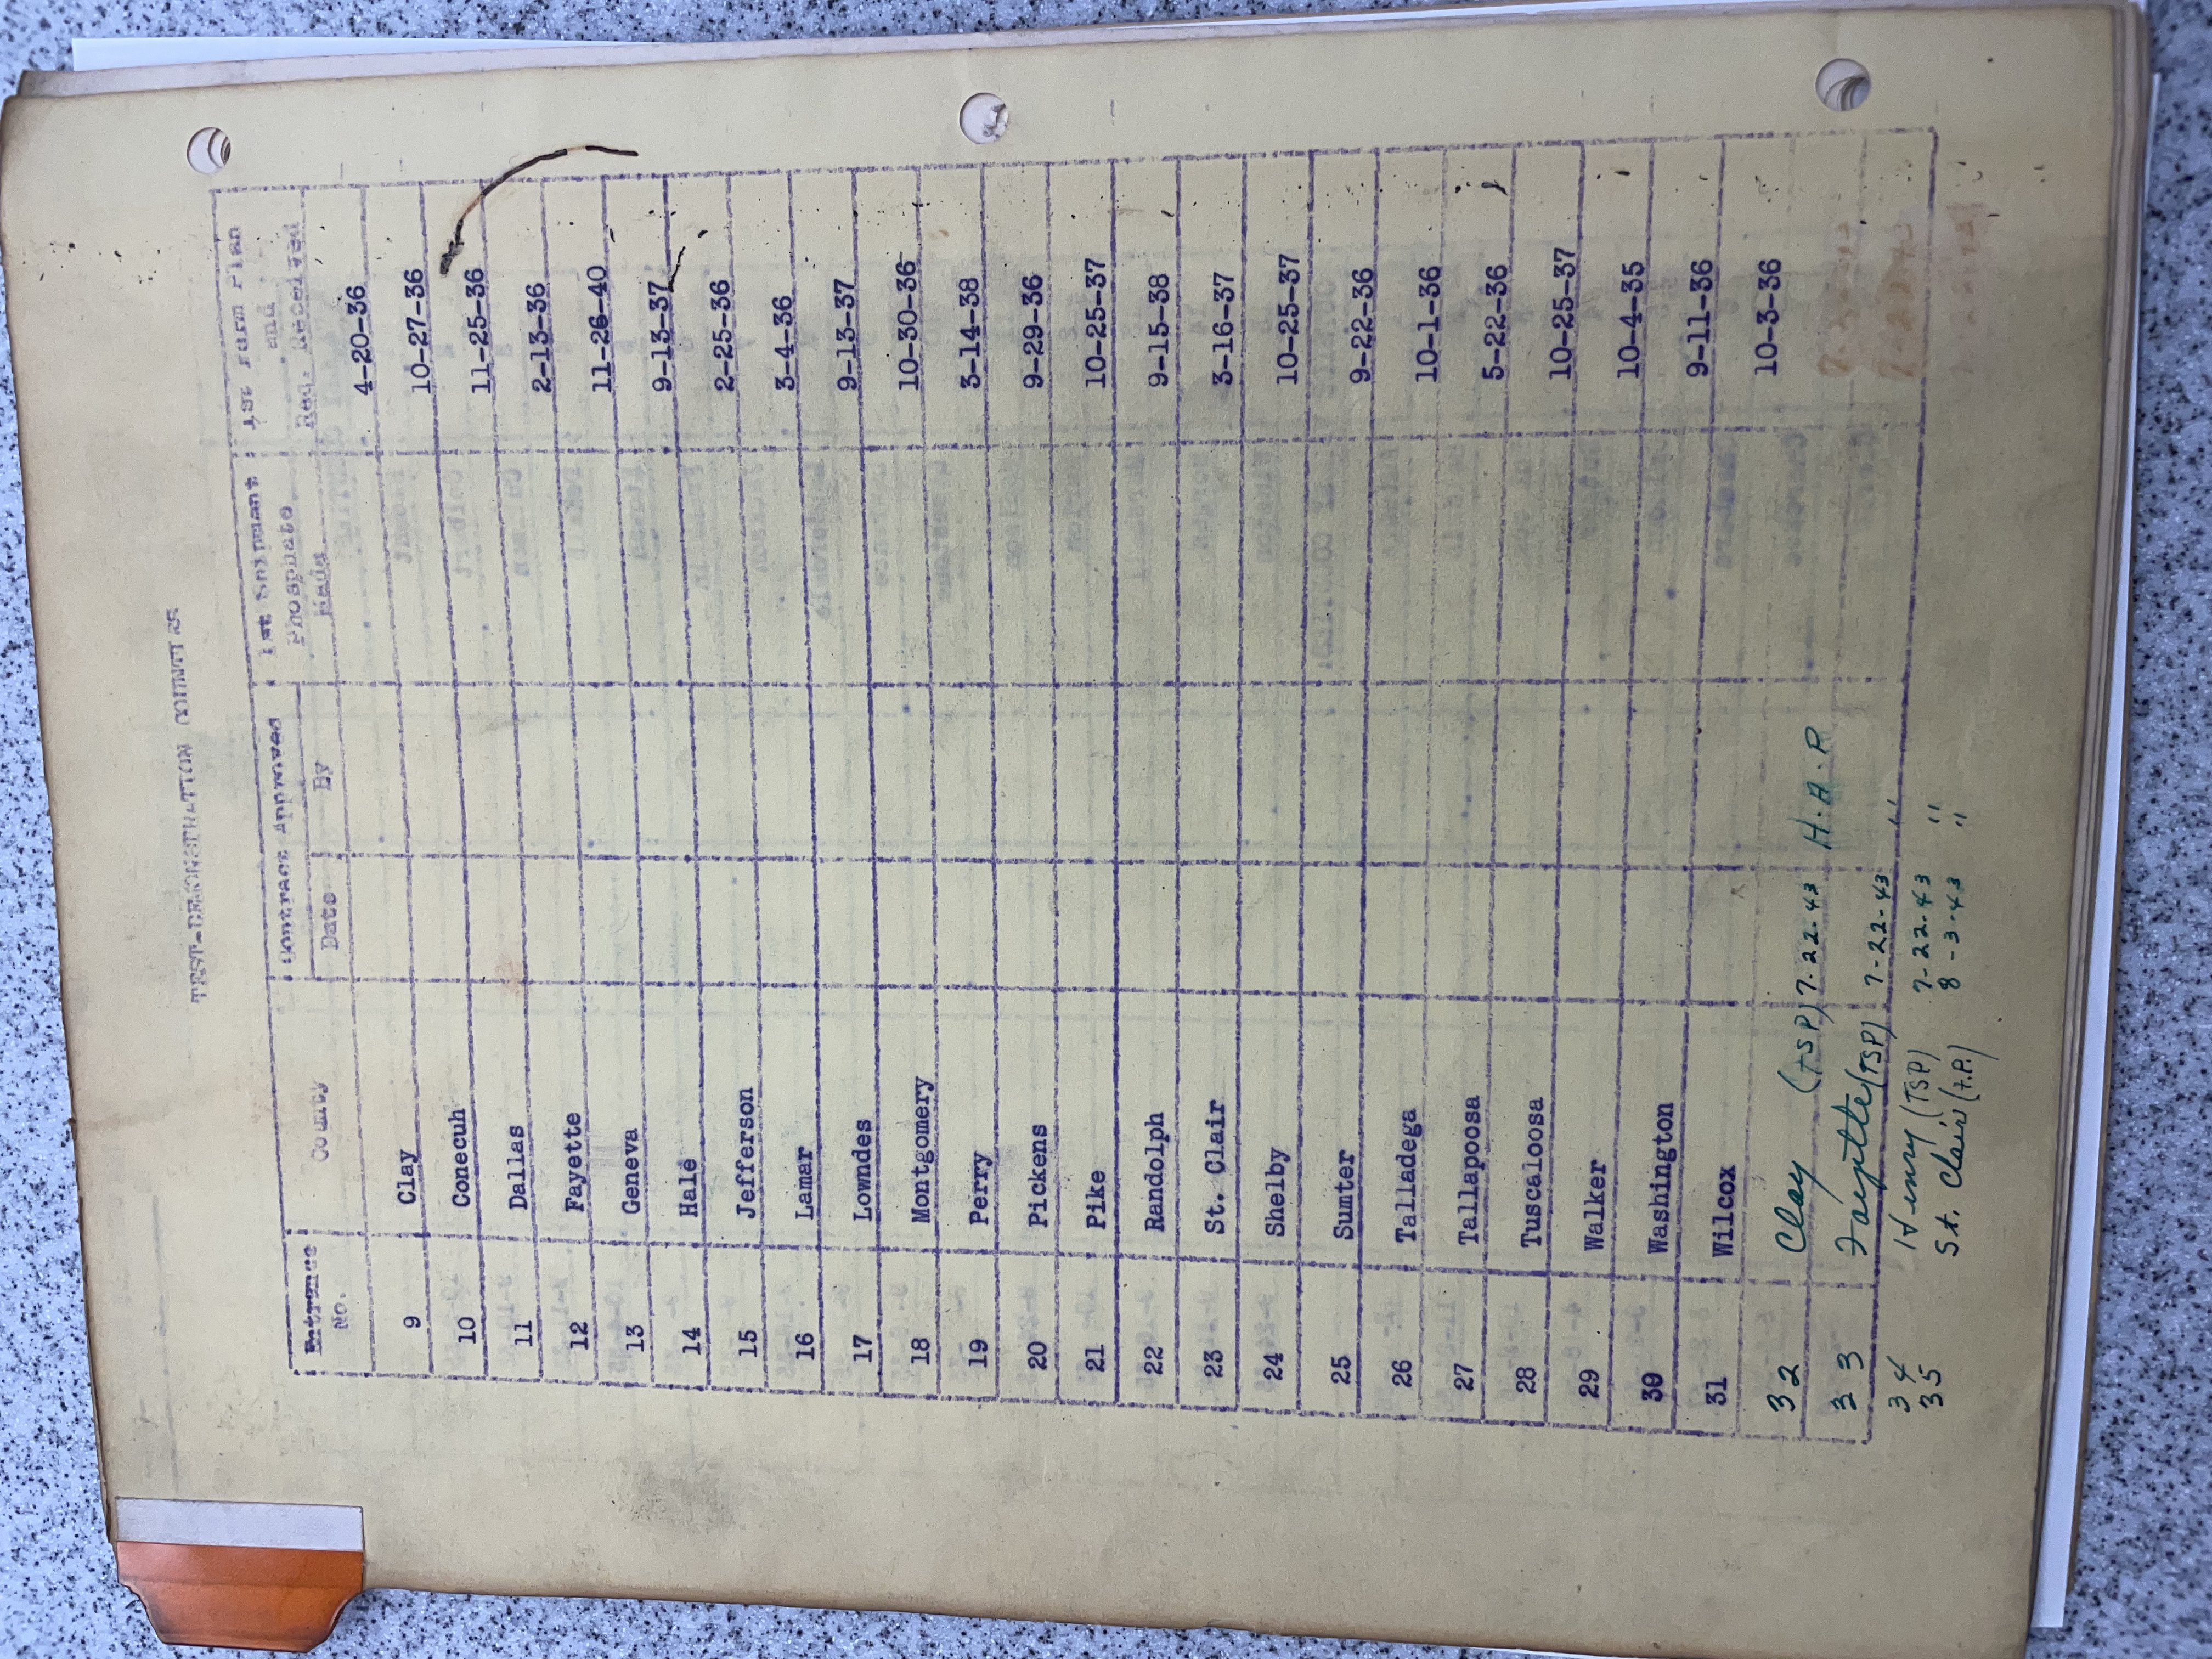 TEST-DEMONSTRATION COUNTIES
Entrance No. County Contract Approved 1st Shipment Phosphate Made 1st Farm Plan and Req. Received
Date By
9 Clay 4-20-36
10 Conecuh 10-27-36
11 Dallas 11-25-36
12 Fayette 2-13-36
13 Geneva 11-26-40
14 Hale 9-13-37
15 Jefferson 2-25-36
16 Lamar 3-4-36
17 Lowndes 9-13-37
18 Montgomery 10-30-36
19 Perry 3-14-38
20 Pickens 9-29-36
21 Pike 10-25-37
22 Randolph 9-15-38
23 St. Clair 3-16-37
24 Shelby 10-25-37
25 Sumter 9-22-36
26 Talladega 10-1-36
27 Tallapoosa 5-22-36
28 Tuscaloosa 10-25-37
29 Walker 10-4-35
30 Washington 9-11-36
31 Wilcox 10-3-36
32 Clay (TSP) 7-22-43 H.A.P
33 Fayette (TSP) 7-22-43 "
34 Henry (TSP) 7-22-43 "
35 St. Clair (t.P.) 8-3-43 "